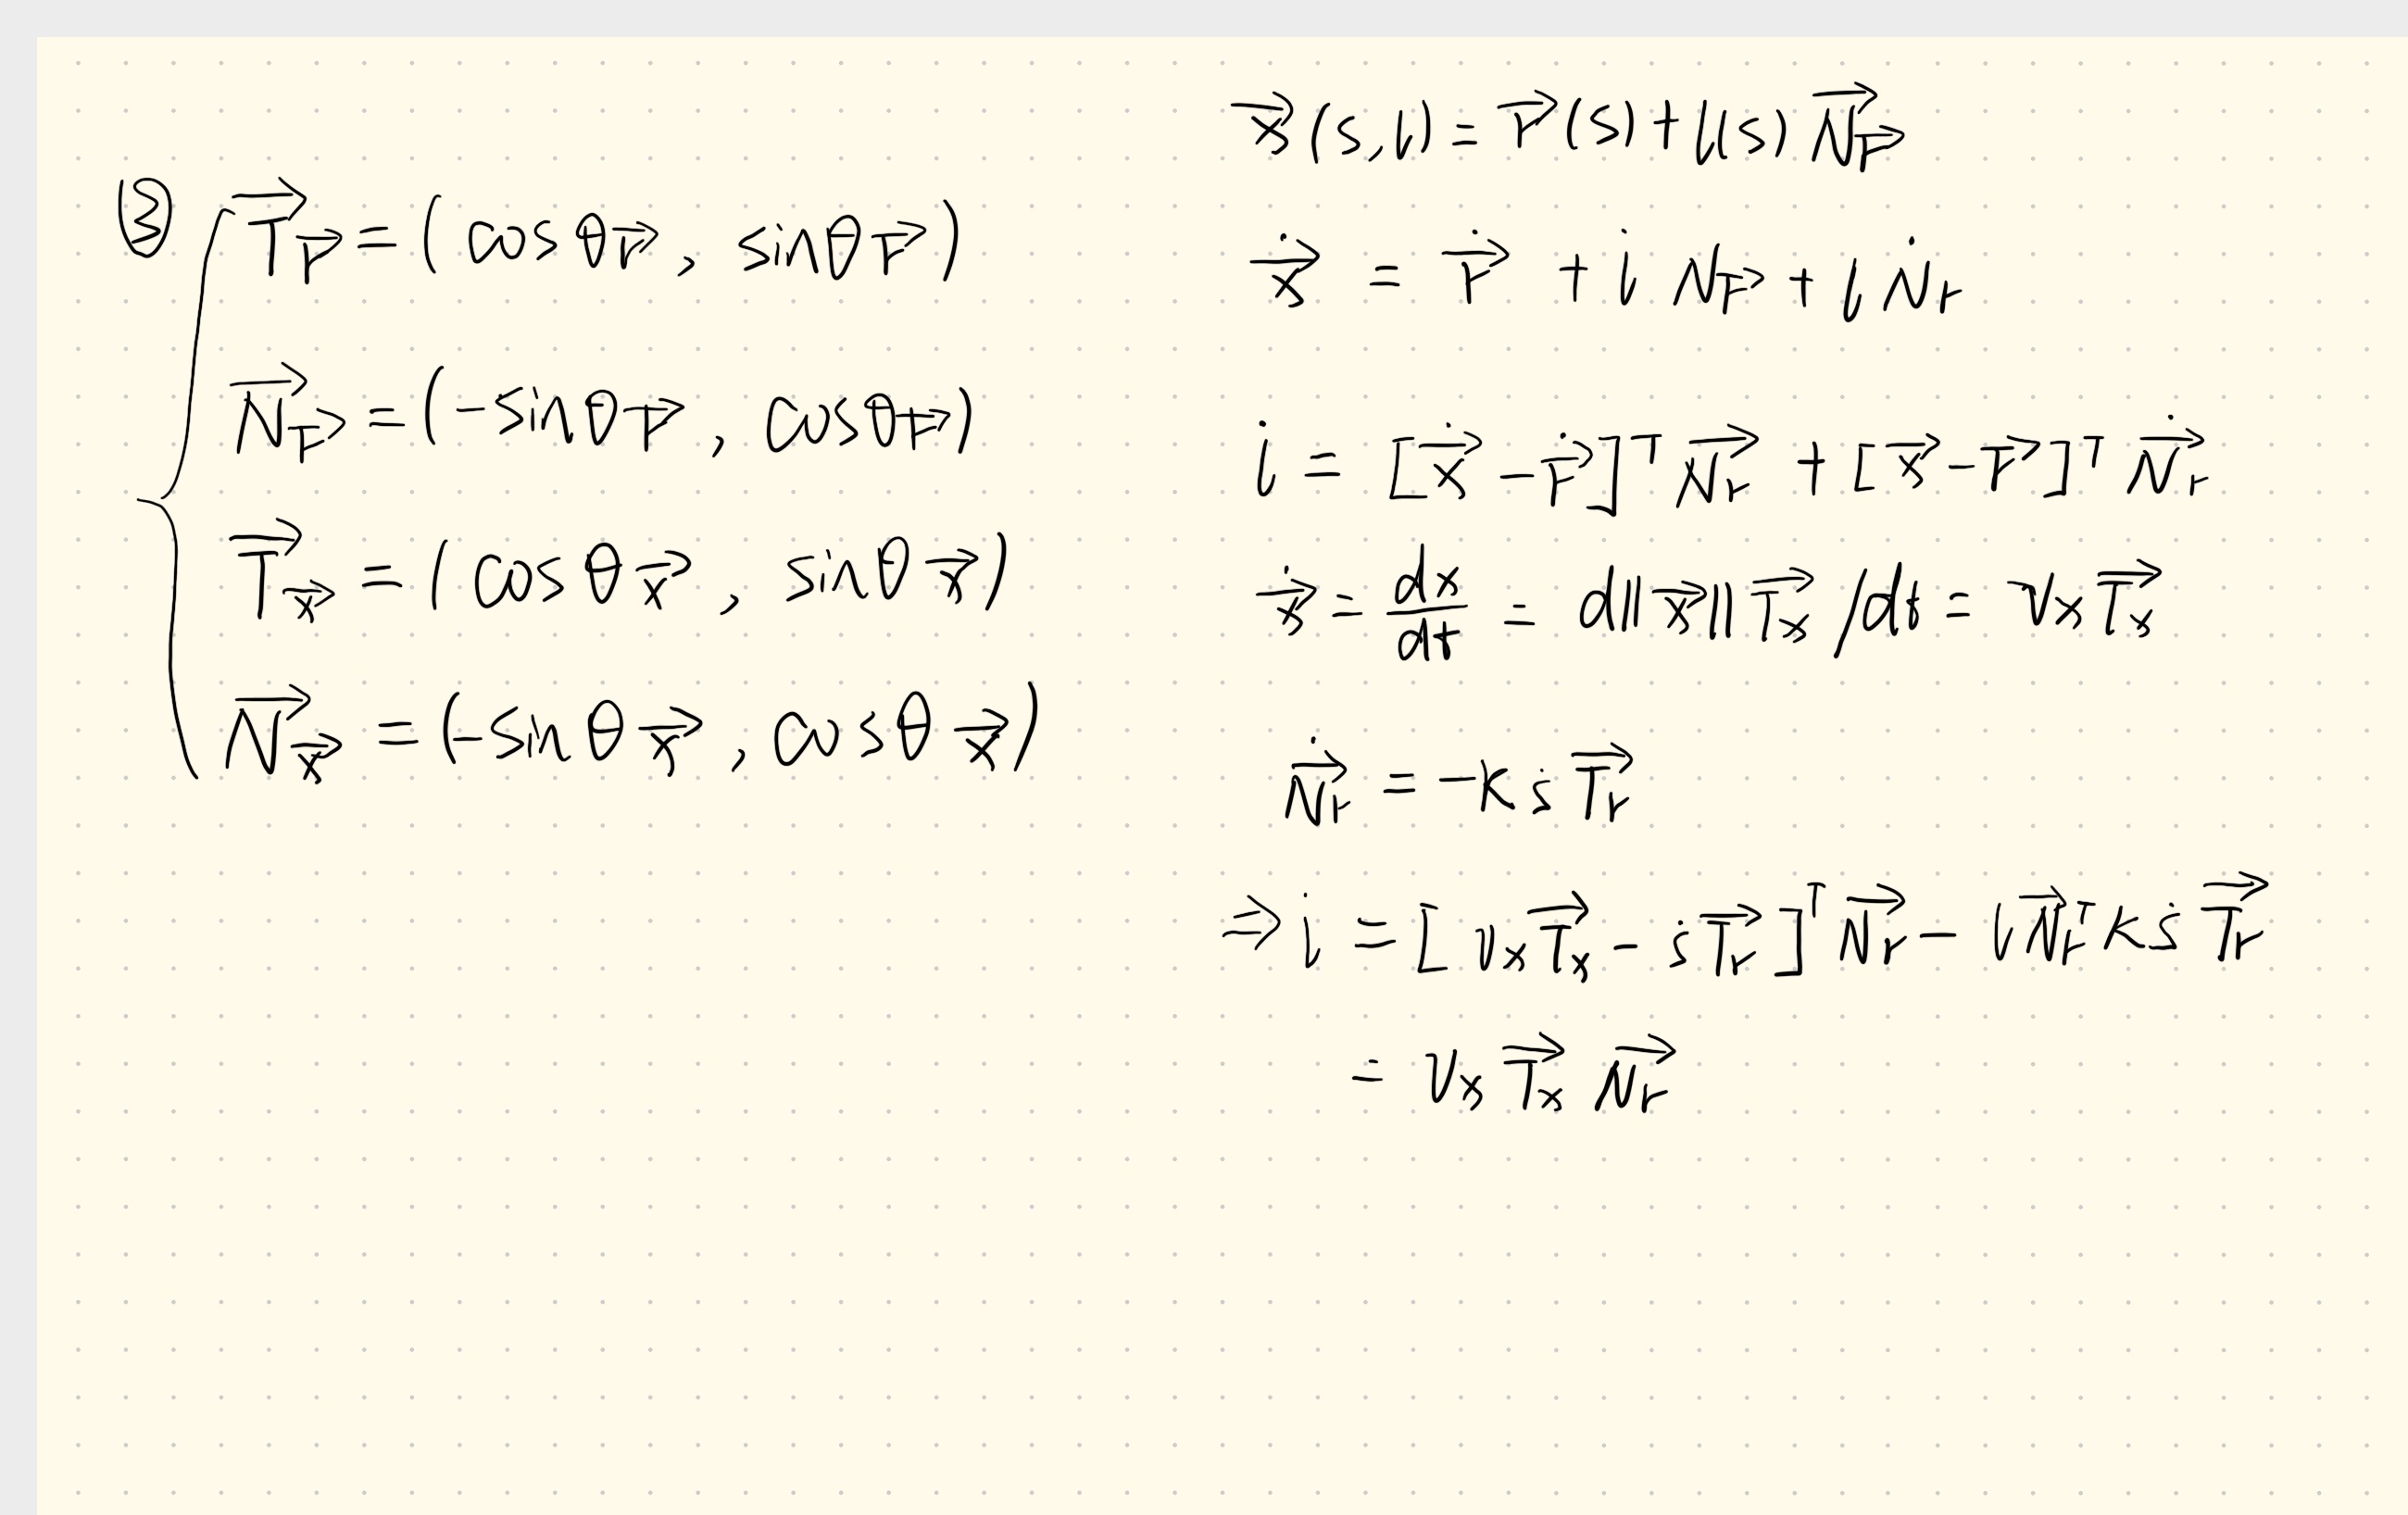 ③ T⃗_r⃗ = (cosθ_r⃗, sinθ_r⃗)
N⃗_r⃗ = (-sinθ_r⃗, cosθ_r⃗)
T⃗_x⃗ = (cosθ_x⃗, sinθ_x⃗)
N⃗_x⃗ = (-sinθ_x⃗, cosθ_x⃗)
x⃗(s, l) = r⃗(s) + l(s) N⃗_r⃗
ẋ⃗ = ṙ⃗ + l̇ N_r⃗ + l Ṅ_r
l̇ = [ẋ⃗ - ṙ⃗]ᵀ N⃗_r + [x⃗ - r⃗]ᵀ Ṅ⃗_r
ẋ⃗ = dx/dt = d||x⃗|| T⃗_x /dt = v_x T⃗_x
Ṅ⃗_r = -k ṡ T⃗_r
⇒ l̇ = [v_x T⃗_x - ṡ T⃗_r]ᵀ N⃗_r - l N⃗_rᵀ k ṡ T⃗_r
= v_x T⃗_x N⃗_r